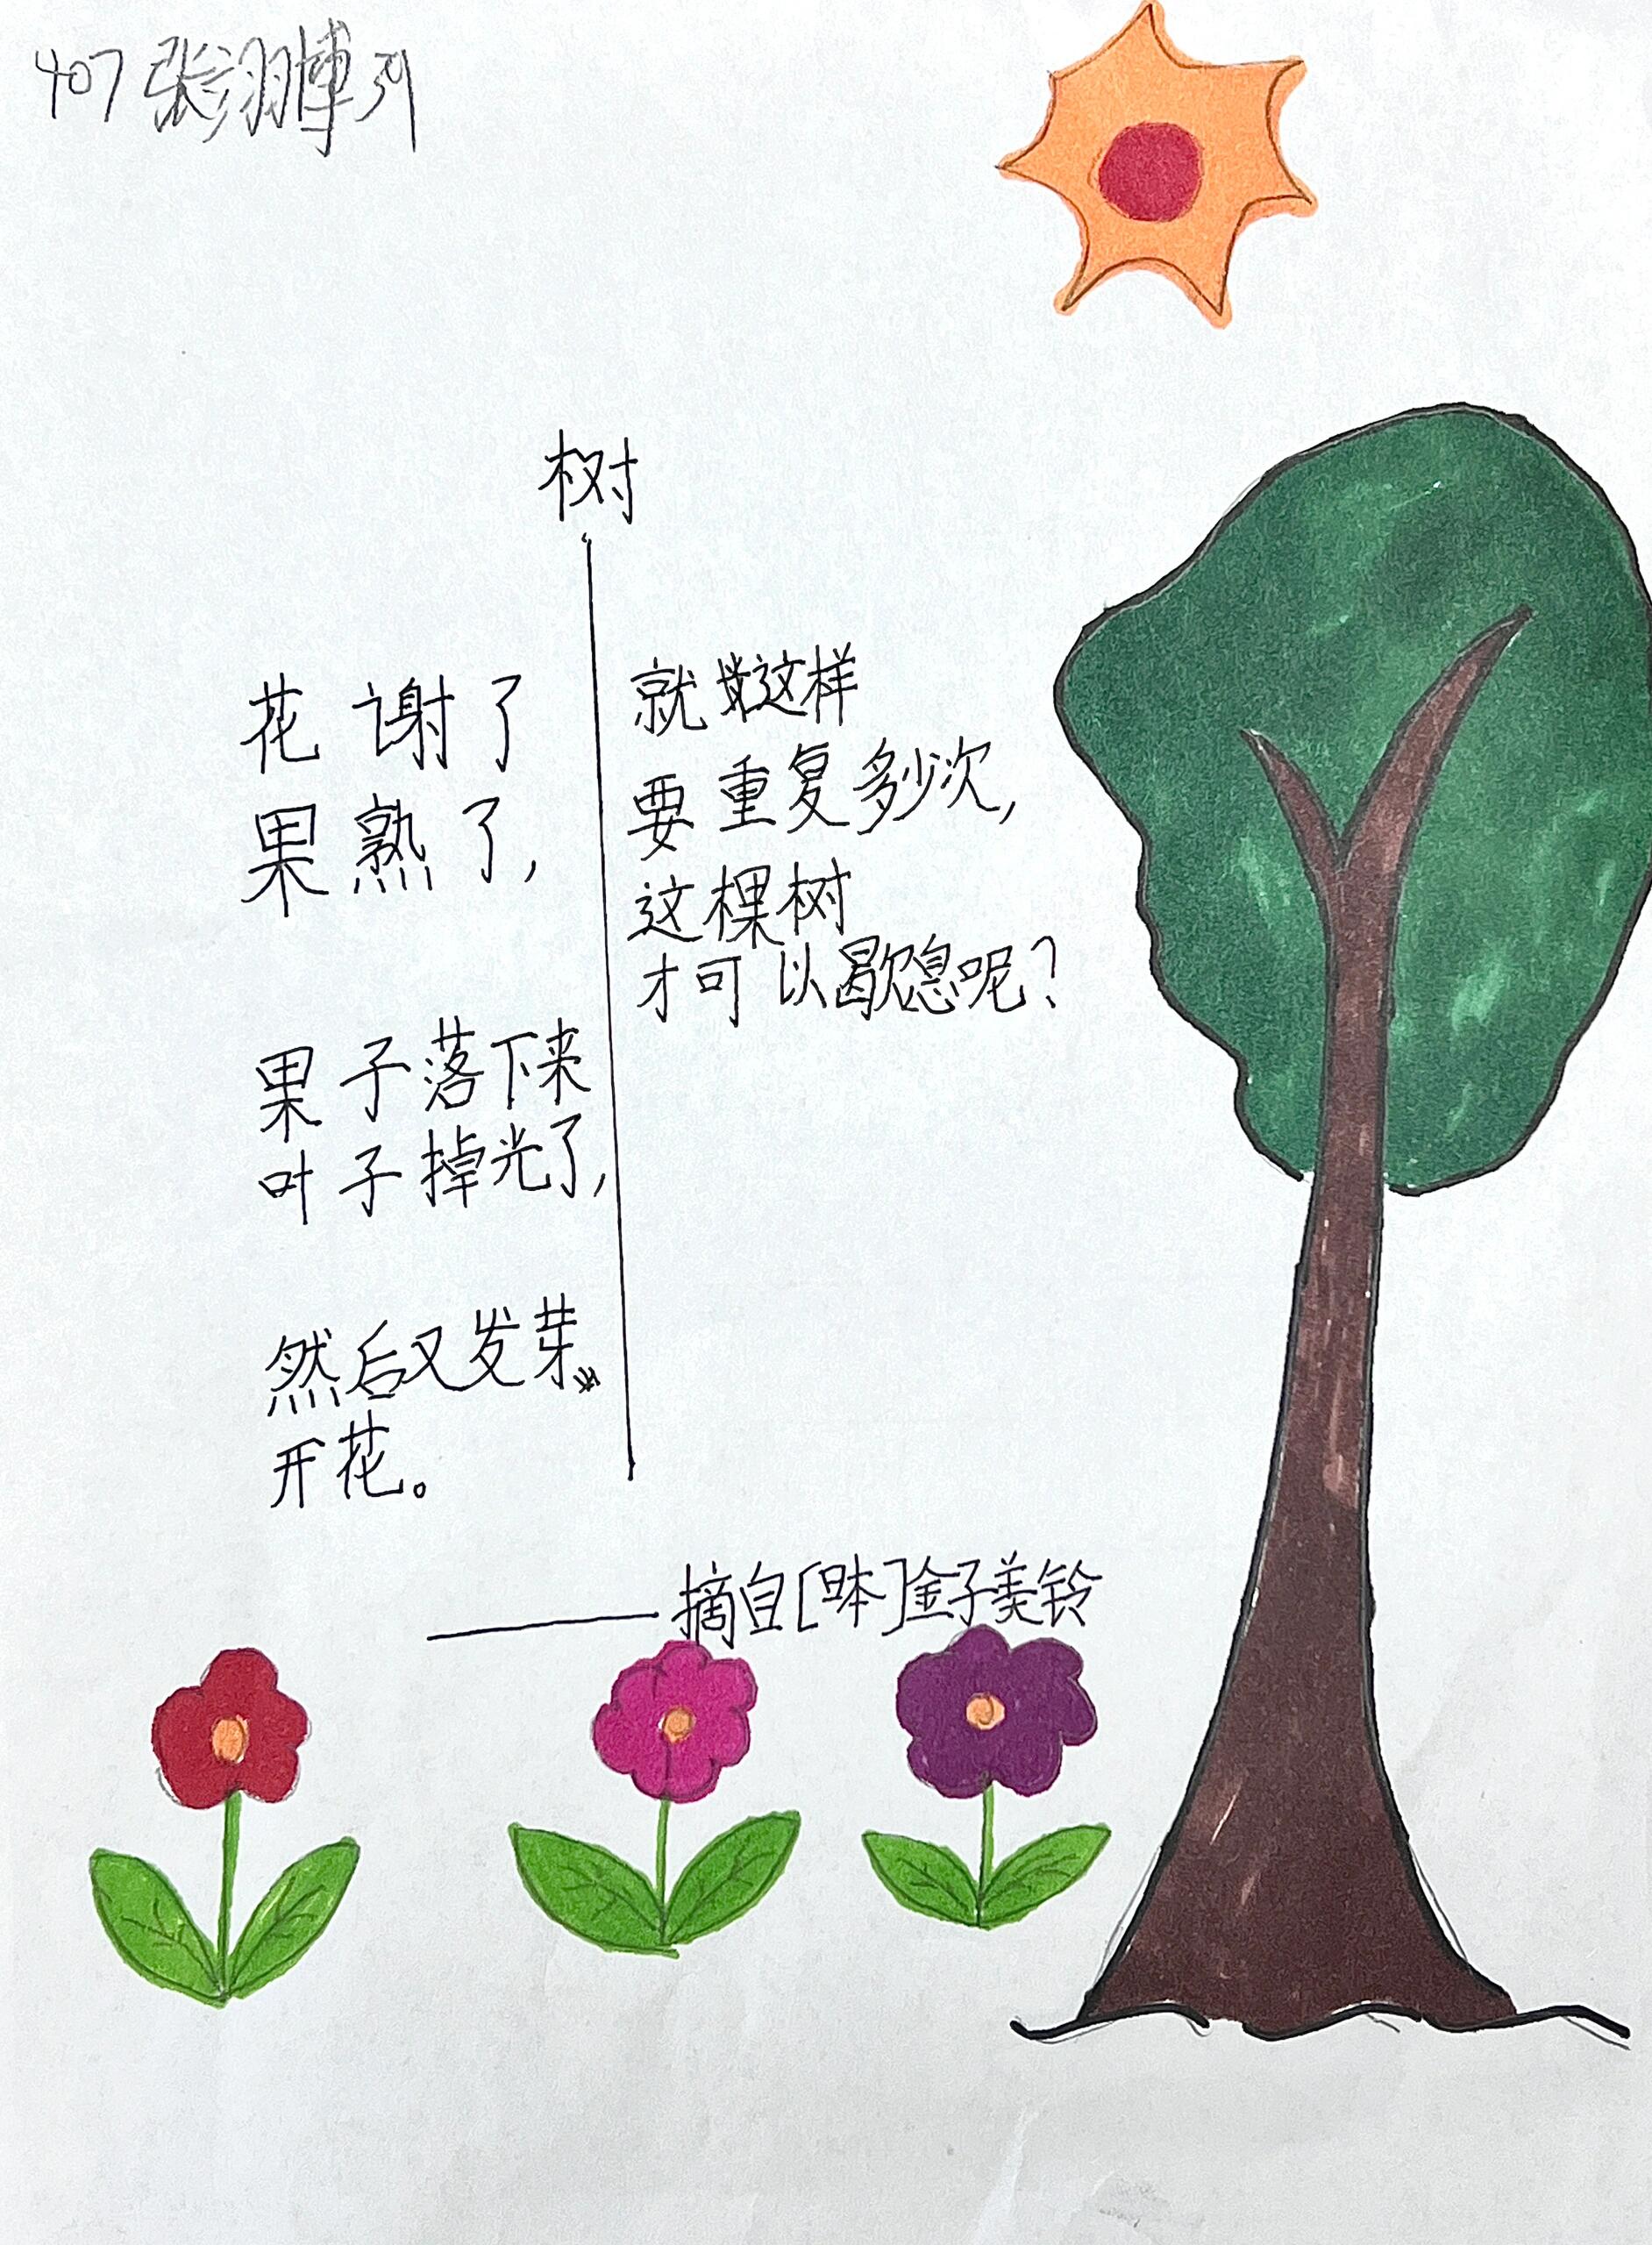 407 张翊博 39
树
花谢了
果熟了,
果子落下来
叶子掉光了,
然后又发芽
开花。
就这样
要重复多少次,
这棵树
才可以歇息呢?
——摘自[日本]金子美铃